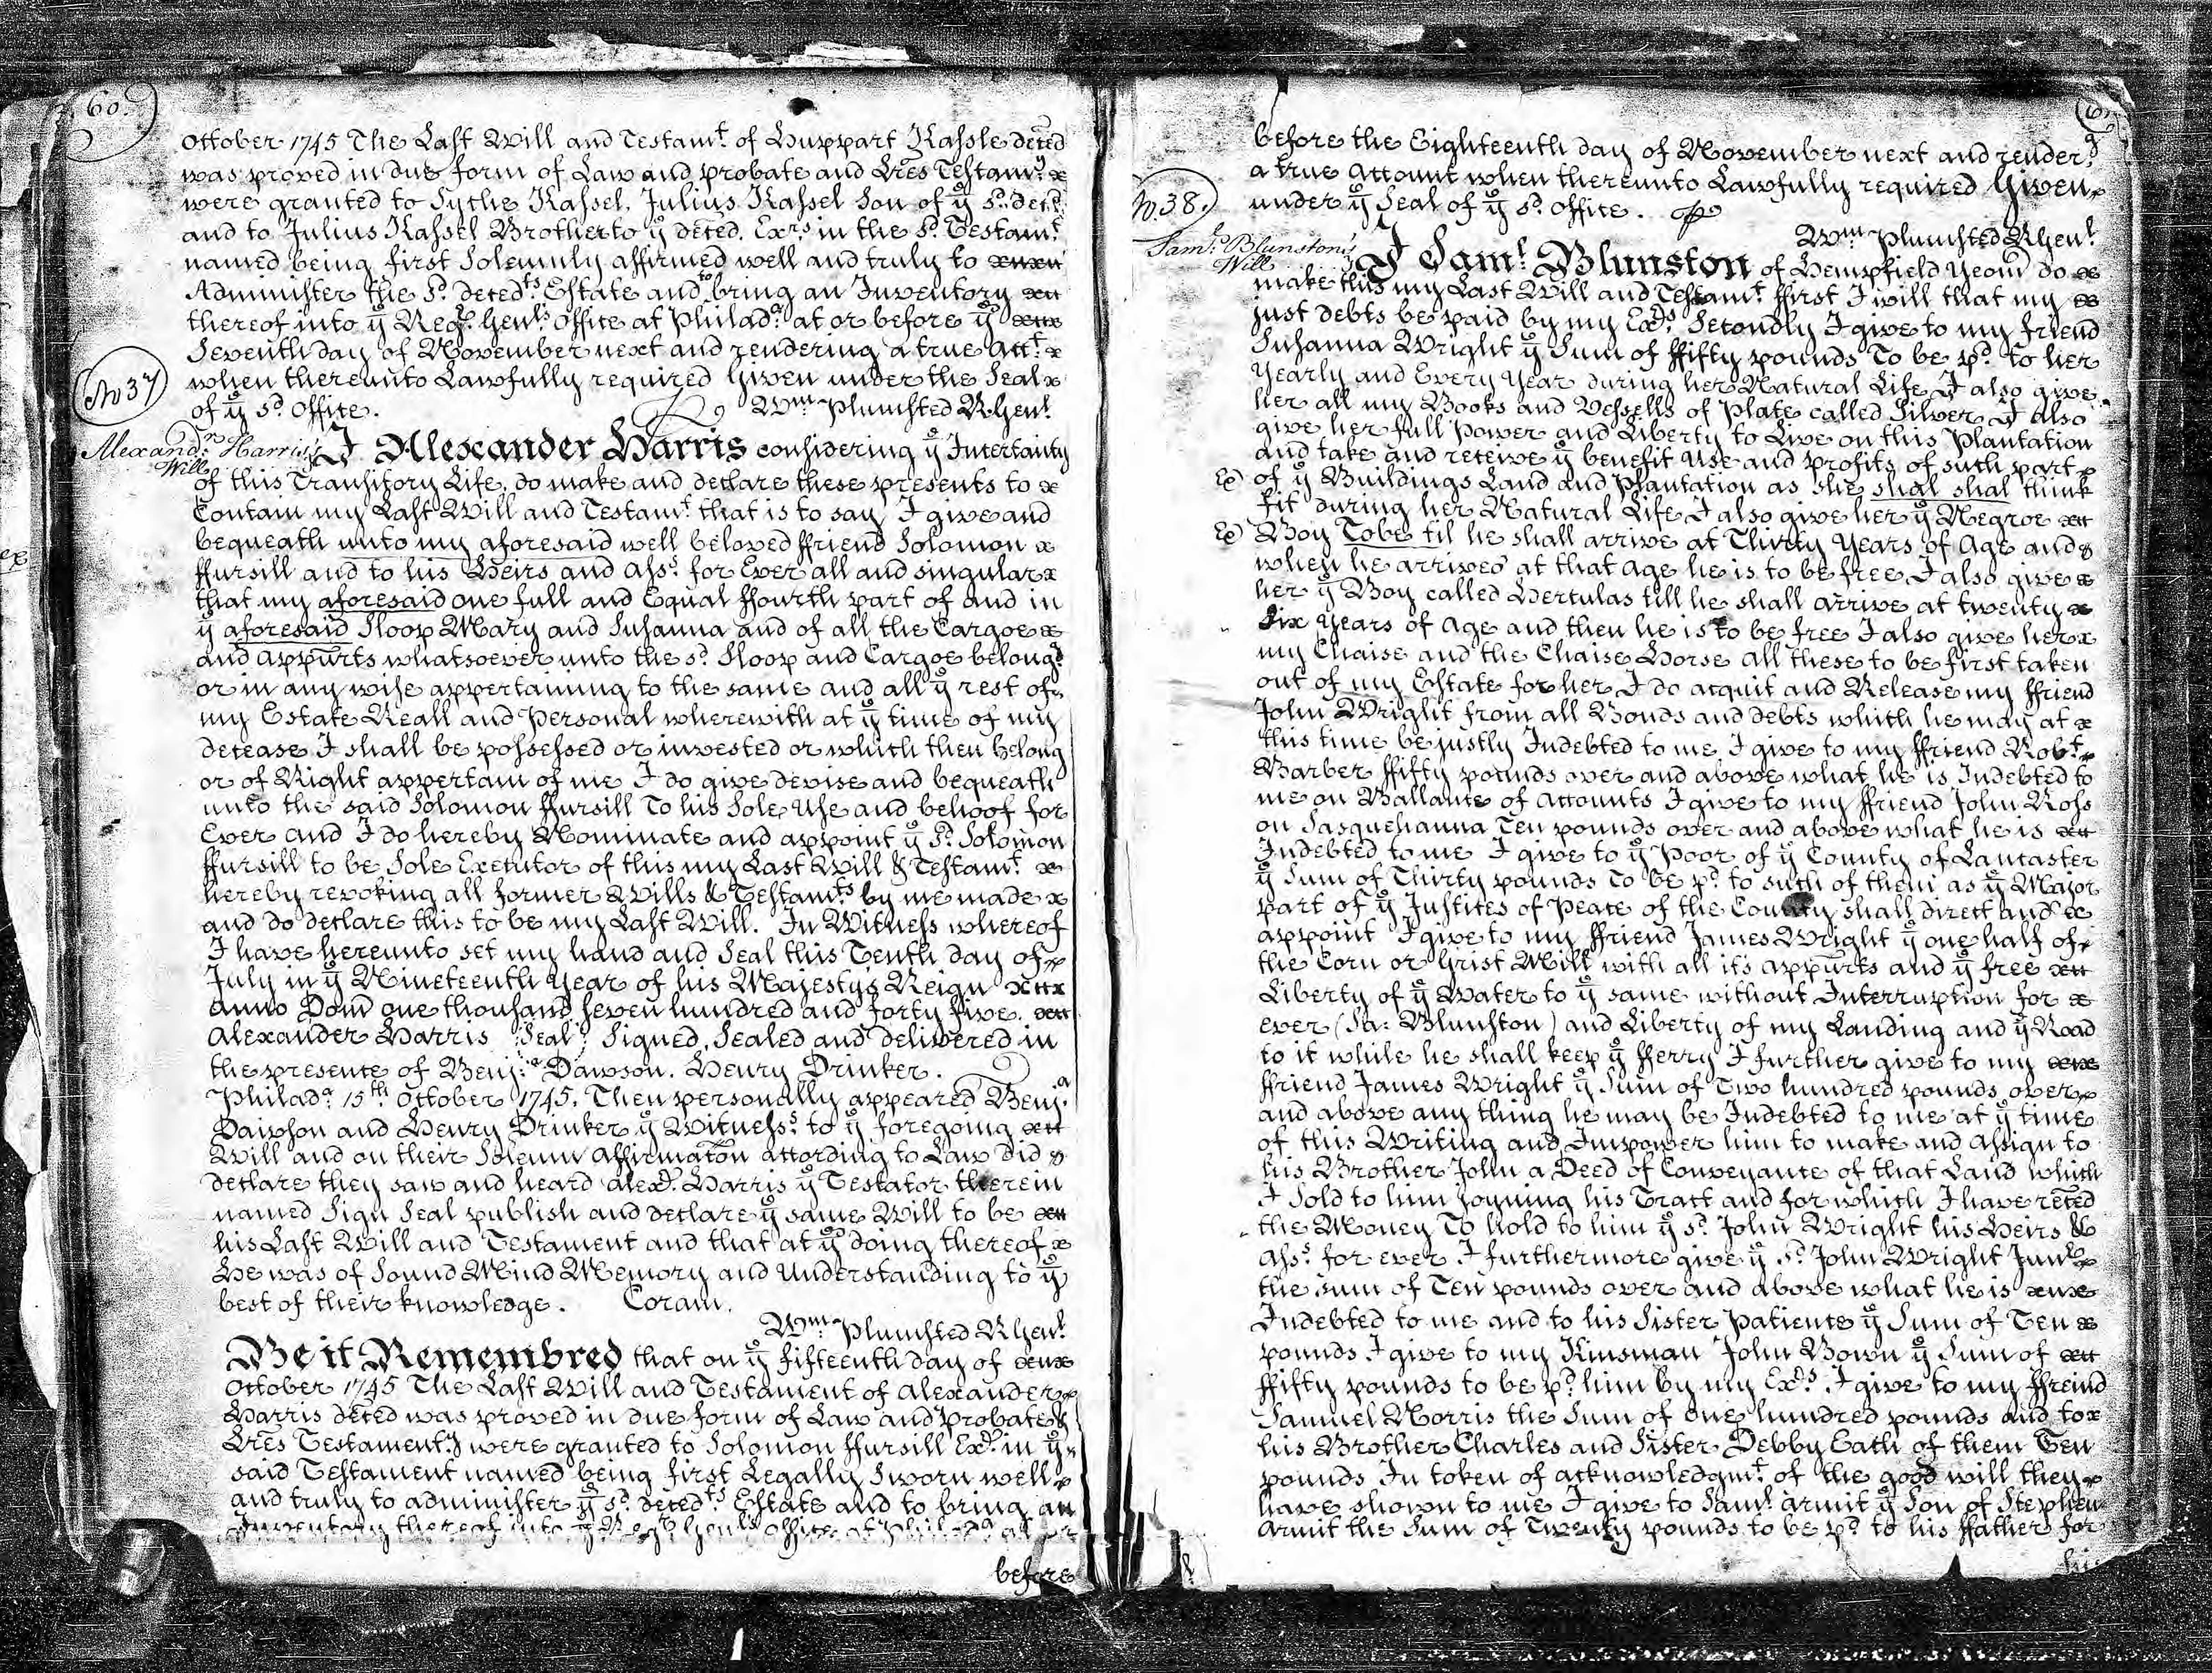 60.
October 1745 The Last Will and Testamt. of Huppart Kassle deced
was proved in due form of Law and probate and Lres Testamy. x
were granted to Sythe Kassel, Julius Kassel Son of ye sd. deced.
and to Julius Kassel Brother to ye deced. Exrs. in the sd. Testamt.
named being first Solemnly affirmed well and truly to
Administer the sd. decedts. Estate and to bring an Inventory
thereof into ye Regr. Genls. Office at Philada. at or before ye
Seventh day of November next and rendering a true Acct. x
when thereunto Lawfully required Given under the Seal x
of ye sd. Office. Wm. Plumsted R. Genl.
No 37
Alexandr. Harris's
Will
I Alexander Harris considering ye Incertainty
of this Transitory Life, do make and declare these presents to x
Contain my Last Will and Testamt. that is to say I give and
bequeath unto my aforesaid well beloved ffriend Solomon x
ffursill and to his Heirs and Asss. for Ever all and singular x
that my aforesaid one full and Equal ffourth part of and in
ye aforesaid Sloop Mary and Susanna and of all the Cargoe x
and appurts whatsoever unto the sd. Sloop and Cargoe belongg.
or in any wise appertaining to the same and all ye rest of
my Estate Reall and Personal wherewith at ye time of my
decease I shall be possessed or invested or which then belong
or of Right appertain of me I do give devise and bequeath
unto the said Solomon ffursill To his Sole Use and behoof for
Ever and I do hereby Nominate and appoint ye sd. Solomon
ffursill to be Sole Executor of this my Last Will & Testamt. x
hereby revoking all former Wills & Testamts. by me made x
and do declare this to be my Last Will. In Witness whereof
I have hereunto set my hand and Seal this Tenth day of
July in ye Nineteenth Year of his Majestys Reign
Anno Dom one thousand seven hundred and forty five.
Alexander Harris Seal Signed, Sealed and delivered in
the presence of Benja. Dawson. Henry Drinker.
Philada. 15th. October 1745. Then personally appeared Benja.
Dawson and Henry Drinker ye Witnesss. to ye foregoing
Will and on their Solemn Affirmaton according to Law did &
declare they saw and heard Alexdr. Harris ye Testator therein
named Sign Seal publish and declare ye same Will to be
his Last Will and Testament and that at ye doing thereof x
He was of Sound Mind Memory and Understanding to ye
best of their knowledge. Coram.
Wm. Plumsted R Genl.
Be it Remembred that on ye fifteenth day of
October 1745 The Last Will and Testament of Alexander
Harris deced was proved in due form of Law and probate &
Lres Testamenty were granted to Solomon ffursill Exr. in ye
said Testament named being first Legally Sworn well
and truly to administer ye sd. decedts. Estate and to bring an
Inventory thereof into ye Regr. Genls. Office at Philada. at or
before
before the Eighteenth day of November next and renderg.
a true account when thereunto Lawfully required Given
under ye Seal of ye sd. Office.
Wm. Plumsted R Genl.
No. 38.
Saml. Blunston's
Will
I Saml. Blunston of Hempfield Yeom do x
make this my Last Will and Testamt. ffirst I will that my
just debts be paid by my Exrs. Secondly I give to my friend
Susanna Wright ye Sum of ffifty pounds To be pd. to her
Yearly and Every Year during her Natural Life I also give
her all my Books and Vessells of Plate called Silver I also
give her full Power and Liberty to Live on this Plantation
and take and receive ye benefit Use and profits of such part
of ye Buildings Land and Plantation as she shal shal think
fit during her Natural Life I also give her ye Negroe
Boy Tobe til he shall arrive at Thirty Years of Age and &
when he arrives at that age he is to be free I also give x
her ye Boy called Herculas till he shall arrive at twenty x
six years of age and then he is to be free I also give her x
my Chaise and the Chaise Horse all these to be first taken
out of my Estate for her I do acquit and Release my ffriend
John Wright from all Bonds and debts which he may at x
this time be justly Indebted to me I give to my ffriend Robt.
Barber ffifty pounds over and above what he is Indebted to
me on Ballance of accounts I give to my ffriend John Ross
on Sasquehanna Ten pounds over and above what he is
Indebted to me I give to ye Poor of ye County of Lancaster
ye Sum of Thirty pounds To be pd. to such of them as ye Major
part of ye Justices of Peace of the County shall direct and
appoint I give to my ffriend James Wright ye one half of
the Corn or Grist Mill with all it's appurts and ye free
Liberty of ye Water to ye same without Interruption for x
ever (Sa: Blunston) and Liberty of my Landing and ye Road
to it while he shall keep ye fferry I further give to my
ffriend James Wright ye Sum of Two hundred pounds over
and above any thing he may be Indebted to me at ye time
of this Writing and Impower him to make and assign to
his Brother John a Deed of Conveyance of that Land which
I Sold to him joyning his Tract and for which I have reced
the Money To hold to him ye sd. John Wright his Heirs &
Asss. for ever I furthermore give ye sd. John Wright Junr.
the sum of Ten pounds over and above what he is
Indebted to me and to his Sister Patience ye Sum of Ten x
pounds I give to my Kinsman John Bown ye Sum of
ffifty pounds to be pd. him by my Exrs. I give to my ffreind
Samuel Norris the Sum of one hundred pounds and to x
his Brother Charles and Sister Debby Each of them Ten
pounds In token of acknowledgmt. of the good will they
have shown to me I give to Saml. Armit ye Son of Stephen
Armit the Sum of Twenty pounds to be pd. to his ffather for